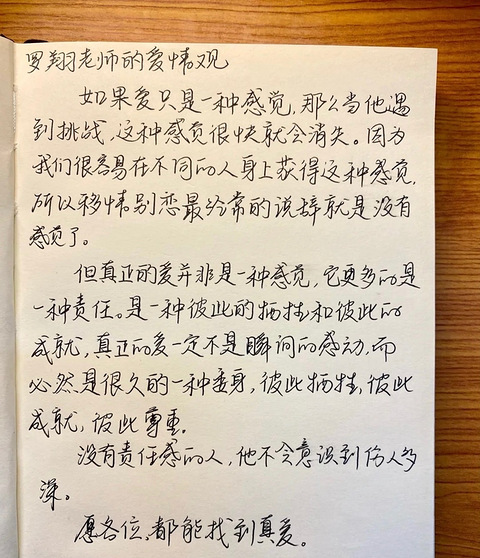 罗翔老师的爱情观
如果爱只是一种感觉,那么当他遇
到挑战,这种感觉很快就会消失。因为
我们很容易在不同的人身上获得这种感觉,
所以移情别恋最经常的说辞就是没有
感觉了。
但真正的爱并非是一种感觉,它更多的是
一种责任。是一种彼此的牺牲和彼此的
成就,真正的爱一定不是瞬间的感动,而
必然是很久的一种委身,彼此牺牲,彼此
成就,彼此尊重。
没有责任感的人,他不会意识到伤人多
深。
愿各位,都能找到真爱。